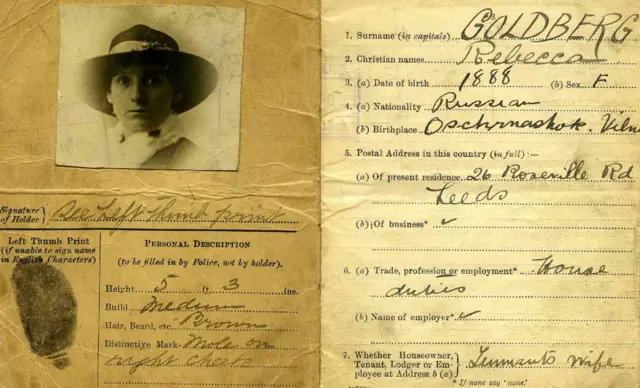 Signature of Holder } See Left thumb print
Left Thumb Print
(if unable to sign name
in English Characters)
PERSONAL DESCRIPTION
(to be filled in by Police, not by holder).
Height 5 ft. 3 ins.
Build Medium
Hair, Beard, etc. Brown
Distinctive Mark- Mole on
right cheek
1. Surname (in capitals) GOLDBERG
2. Christian names Rebecca
3. (a) Date of birth 1888 (b) Sex F
4. (a) Nationality Russian
(b) Birthplace Vilna
5. Postal Address in this country (in full) :—
(a) Of present residence 26 Roseville Rd
Leeds
(b) Of business*
6. (a) Trade, profession or employment* House
duties
(b) Name of employer*
7. Whether Houseowner, Tenant, Lodger or Employee at Address 5 (a) } Tennants wife
* If none say 'none.'